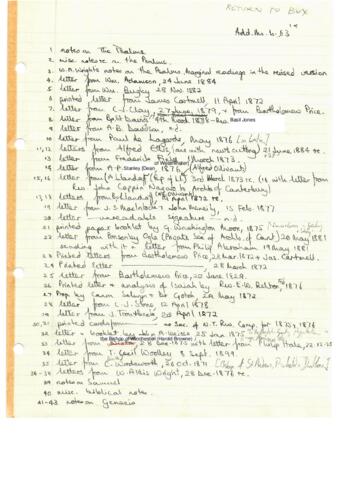 RETURN TO BOX
Add.Ms.6.63
1. notes on The Psalms
2. misc notes on the Psalms.
3. W.A. Wright's notes on The Psalms, Marginal readings in the revised version
4. letter from Wm. Adamson, 24 June 1884
5. letter from Wm. 28 Nov. 1882
6. printed letter from James Cartmell, 11 April 1872
7. letter from C.J. Clay, 27 June 1879, + from Bartholomew Price.
8. letter from 1878 - Rev. Basil Jones
9. letter from A.B. Davidson, n.d.
10. letter from Paul de Lagarde, May 1876 [in Latin]
11,12 letters from Alfred (one with news cutting) 21 June, 1884 etc
13 letter from Frederick Field, March 1873.
14 letter from A.P. Stanley (Dean of Westminster) 1876 (Alfred Ollivant)
15,16 letter from A. Llandaff (Bp of Ll) 3rd March 1873 etc. (16 with letter from
Rev John Coppin to Archb of Canterbury)
17,18 letters from Bp Llandaff (A. Ollivant) April 1872 etc.
19 letter from J.S. + John 15 Feb 1877
20 letter — unreadable signature — n.d.
21 printed paper booklet by G. Washington Moon, 1875
22 letter from (Private Sec of Archb. of Cant) 20 May 1881
sending with it a letter from Philip Abraham 19 May 1881
23 Printed letters from Bartholomew Price, 28 Mar 1872 + Jas. Cartmell.
24 Printed letter 28 March 1872
25 letter from Bartholomew Price, 20 June 1879.
26 Printed letter + analysis of Isaiah by Rev. E.W. 1876
27 Prop by Canon Selwyn + Dr Gotch 20 May 1872
28 letter from C.J. Stone, 12 April 1878
29 letter from J. 20 April 1872
30,31 printed cards from Sec of O.T. Rev. Comp. for 1875 + 1876
32 letter + booklet by 25 Jan 1875
33 letter from the Bishop of Winchester (Harold Browne) 28 Dec 1875 with letter from Philip Hale, 22.12.75
34 letter from T. Cecil Woolley 8 Sept. 1899
35 letter from C. Wordsworth, 26 Oct 1871 [Bishop of St Andrews, Dunblane]
36-38 letters from W. Aldis Wright, 28 Dec 1876 etc.
39 notes on Samuel
40 misc. biblical notes
41-43 notes on Genesis